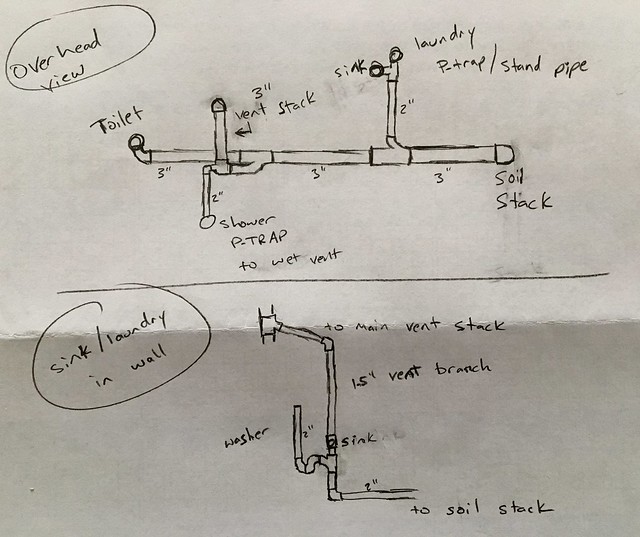 Overhead
view
Toilet
3"
vent stack
sink
laundry
P-trap/stand pipe
2"
3"
2"
3"
3"
Soil
Stack
shower
P-TRAP
to wet vent
sink/laundry
in wall
to main vent stack
1.5" vent branch
washer
2"
sink
2"
to soil stack